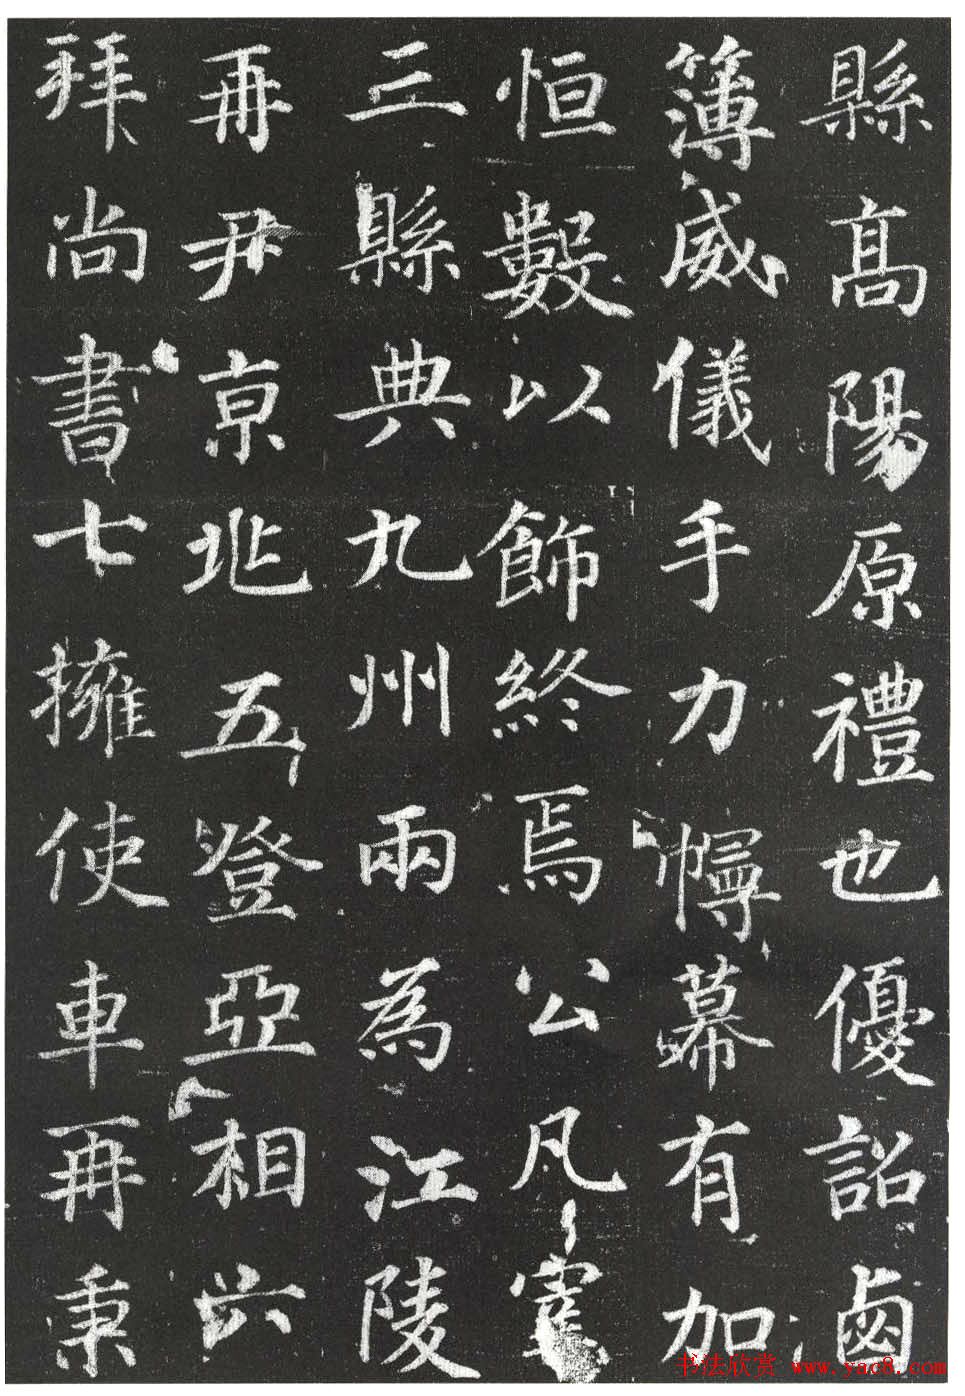 縣高陽原禮也優詔鹵
簿威儀手力幰幕有加
恒數以飾終焉公凡宰
三縣典九州兩為江陵
再尹京兆五登亞相六
拜尚書七擁使車再秉
书法欣赏 www.yac8.com